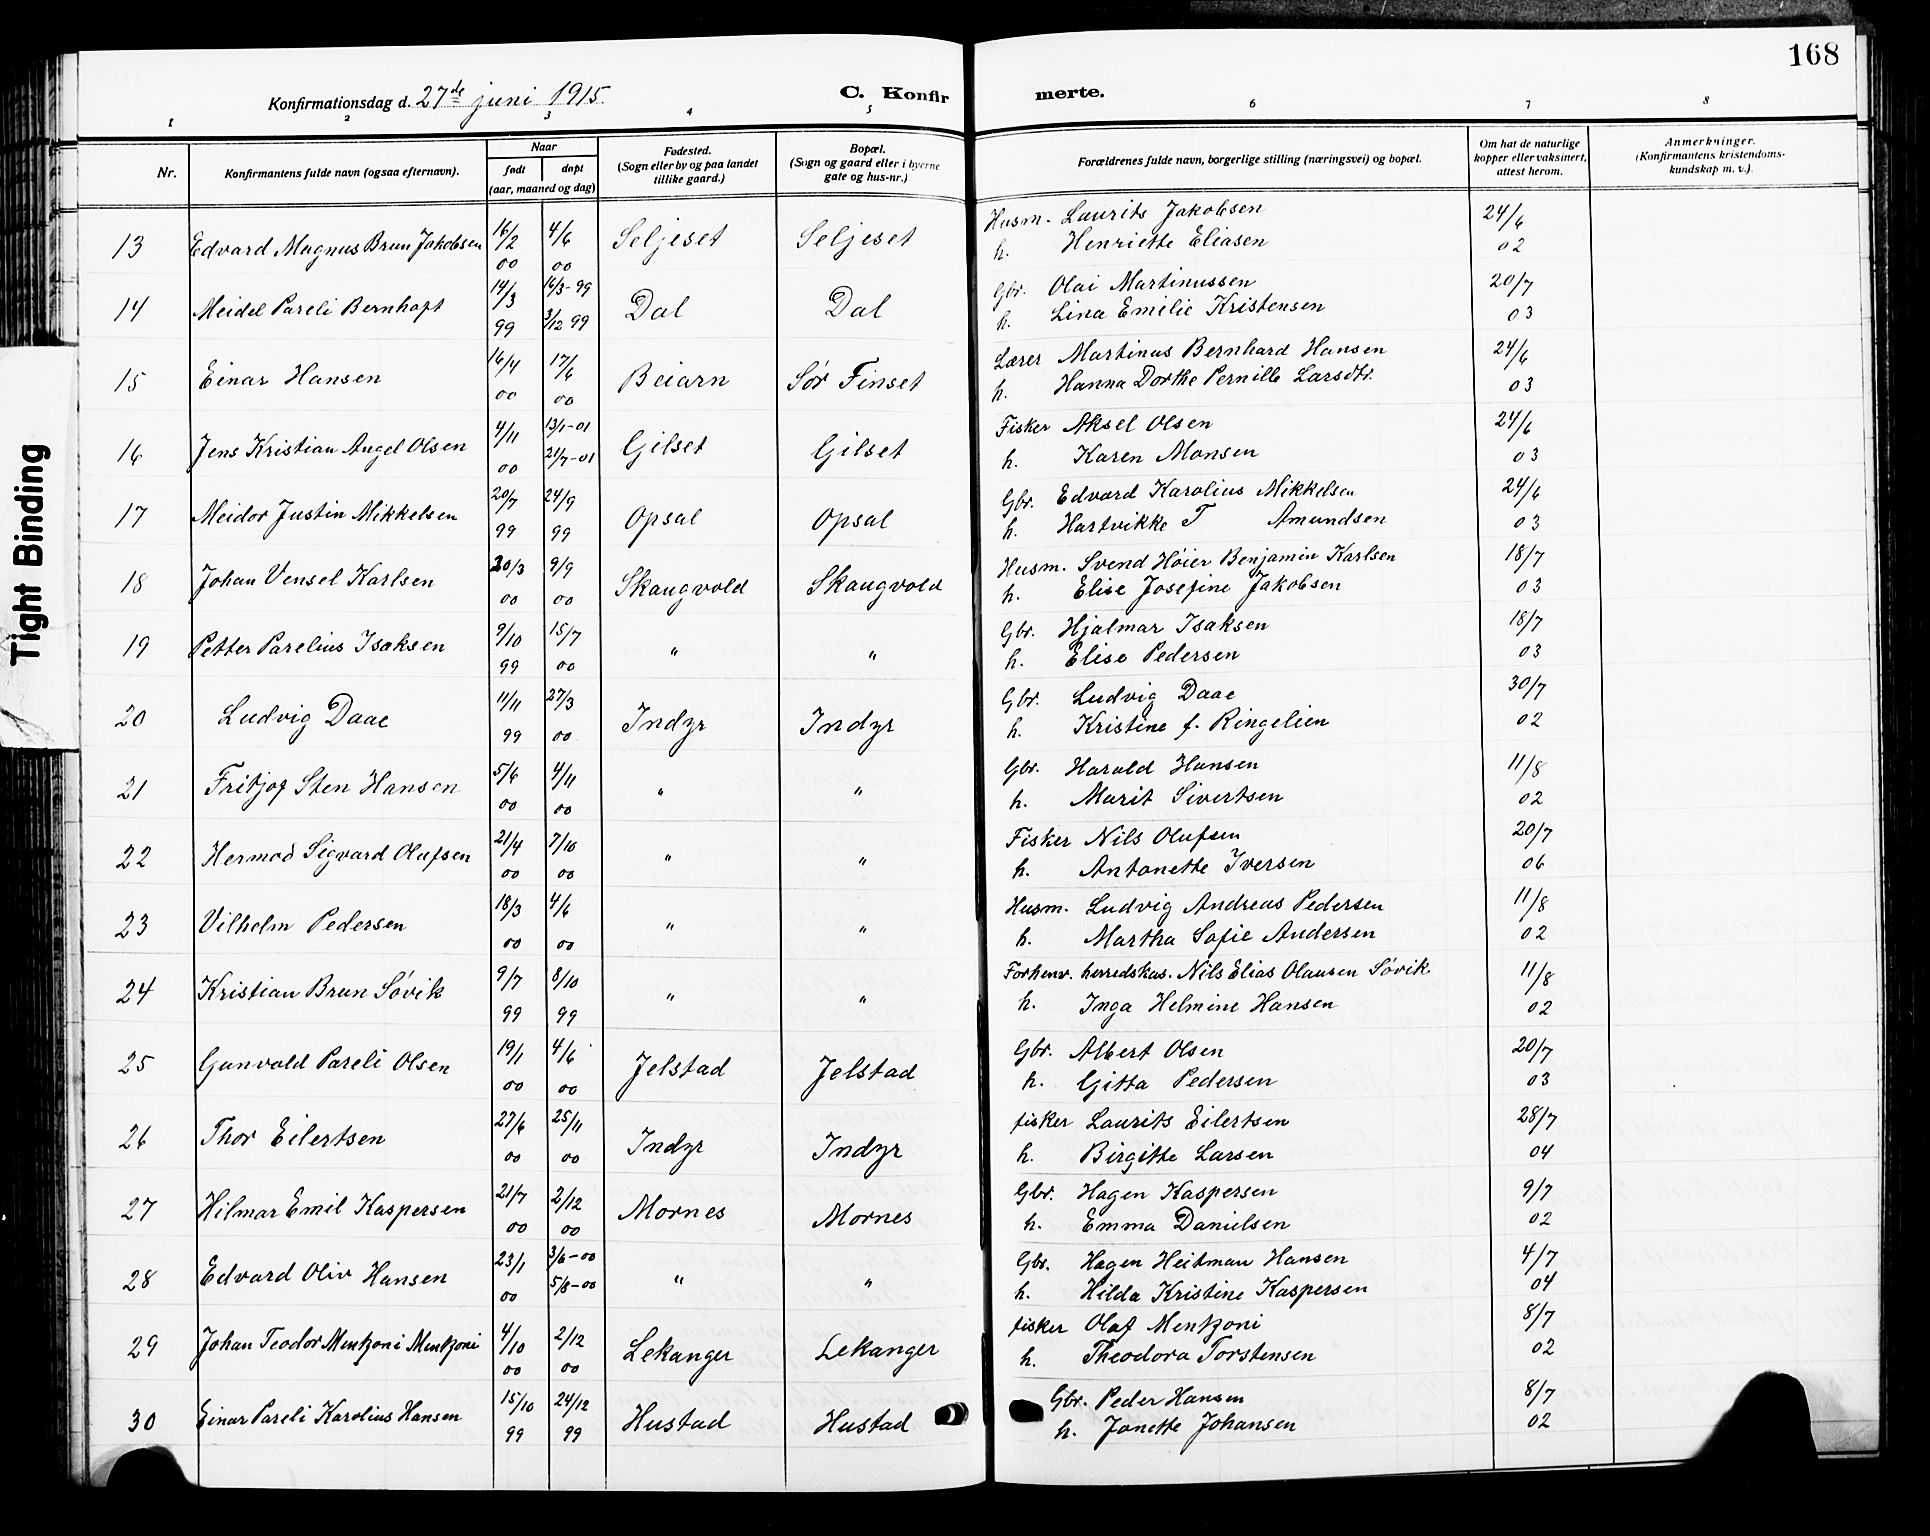 168
Konfirmationsdag d. 27de juni 1915.
C. Konfir
merte.
1 2 3 4 5 6 7 8
Nr.
Konfirmantens fulde navn (ogsaa efternavn).
Naar
født døpt
(aar, maaned og dag)
Fødested.
(Sogn eller by og paa landet
tillike gaard.)
Bopæl.
(Sogn og gaard eller i byerne
gate og hus-nr.)
Forældrenes fulde navn, borgerlige stilling (næringsvei) og bopæl.
Om hat de naturlige
kopper eller vaksinert,
attest herom.
Anmerkninger.
(Konfirmantens kristendoms-
kundskap m. v.)
13 Edvard Magnus Brun Jakobsen 16/2 00 4/6 00 Seljeset Seljeset Husm. Laurits Jakobsen 24/6
h. Henriette Eliasen 02
14 Meidel Pareli Bernhoft 14/3 99 16/3-99 3/12 99 Dal Dal Gbr. Olai Martinussen 20/7
h. Lina Emilie Kristensen 03
15 Einar Hansen 16/4 00 17/6 00 Beiarn Sør Finset Lærer Martinus Bernhard Hansen 24/6
h. Hanna Dorthe Pernille Larsdtr. 03
16 Jens Kristian Angel Olsen 4/11 00 13/1-01 21/7-01 Gilset Gilset Fisker Aksel Olsen 24/6
h. Karen Monsen 03
17 Meidor Justin Mikkelsen 20/7 99 24/9 99 Opsal Opsal Gbr. Edvard Karolius Mikkelsen 24/6
h. Hartvikke T Amundsen 03
18 Johan Vensel Karlsen 20/3 00 9/9 00 Skaugvold Skaugvold Husm. Svend Høier Benjamin Karlsen 18/7
h. Elise Josefine Jakobsen 03
19 Petter Parelius Isaksen 9/10 99 15/7 00 " " Gbr. Hjalmar Isaksen 18/7
h. Elise Pedersen 03
20 Ludvig Daae 11/11 99 27/3 00 Indyr Indyr Gbr. Ludvig Daae 30/7
h. Kristine f. Ringelien 02
21 Fritjof Sten Hansen 5/6 00 4/11 00 " " Gbr. Harald Hansen 11/8
h. Marit Sivertsen 02
22 Hermod Sigvard Olufsen 21/4 00 7/10 00 " " Fisker Nils Olufsen 20/7
h. Antonette Iversen 06
23 Vilhelm Pedersen 18/3 00 4/6 00 " " Husm. Ludvig Andreas Pedersen 11/8
h. Martha Sofie Andersen 02
24 Kristian Brun Søvik 9/7 99 8/10 99 " " Forhenv. herredskas. Nils Elias Olausen Søvik 11/8
h. Inga Helmine Hansen 02
25 Gunvald Pareli Olsen 19/1 00 4/6 00 Jelstad Jelstad Gbr. Albert Olsen 20/7
h. Gitta Pedersen 03
26 Thor Eilertsen 27/6 00 25/11 00 Indyr Indyr fisker Laurits Eilertsen 28/7
h. Birgitte Larsen 04
27 Hilmar Emil Kaspersen 21/7 00 2/12 00 Mornes Mornes Gbr. Hagen Kaspersen 9/7
h. Emma Danielsen 02
28 Edvard Oliv Hansen 23/1 00 3/6-00 5/8-00 " " Gbr. Hagen Heitman Hansen 4/7
h. Hilda Kristine Kaspersen 04
29 Johan Teodor Mentzoni Mentzoni 4/10 00 2/12 00 Lekanger Lekanger fisker Olaf Mentzoni 8/7
h. Theodora Torstensen 02
30 Einar Pareli Karolius Hansen 15/10 99 24/12 99 Hustad Hustad Gbr. Peder Hansen 8/7
h. Janette Johansen 02
Tight Binding